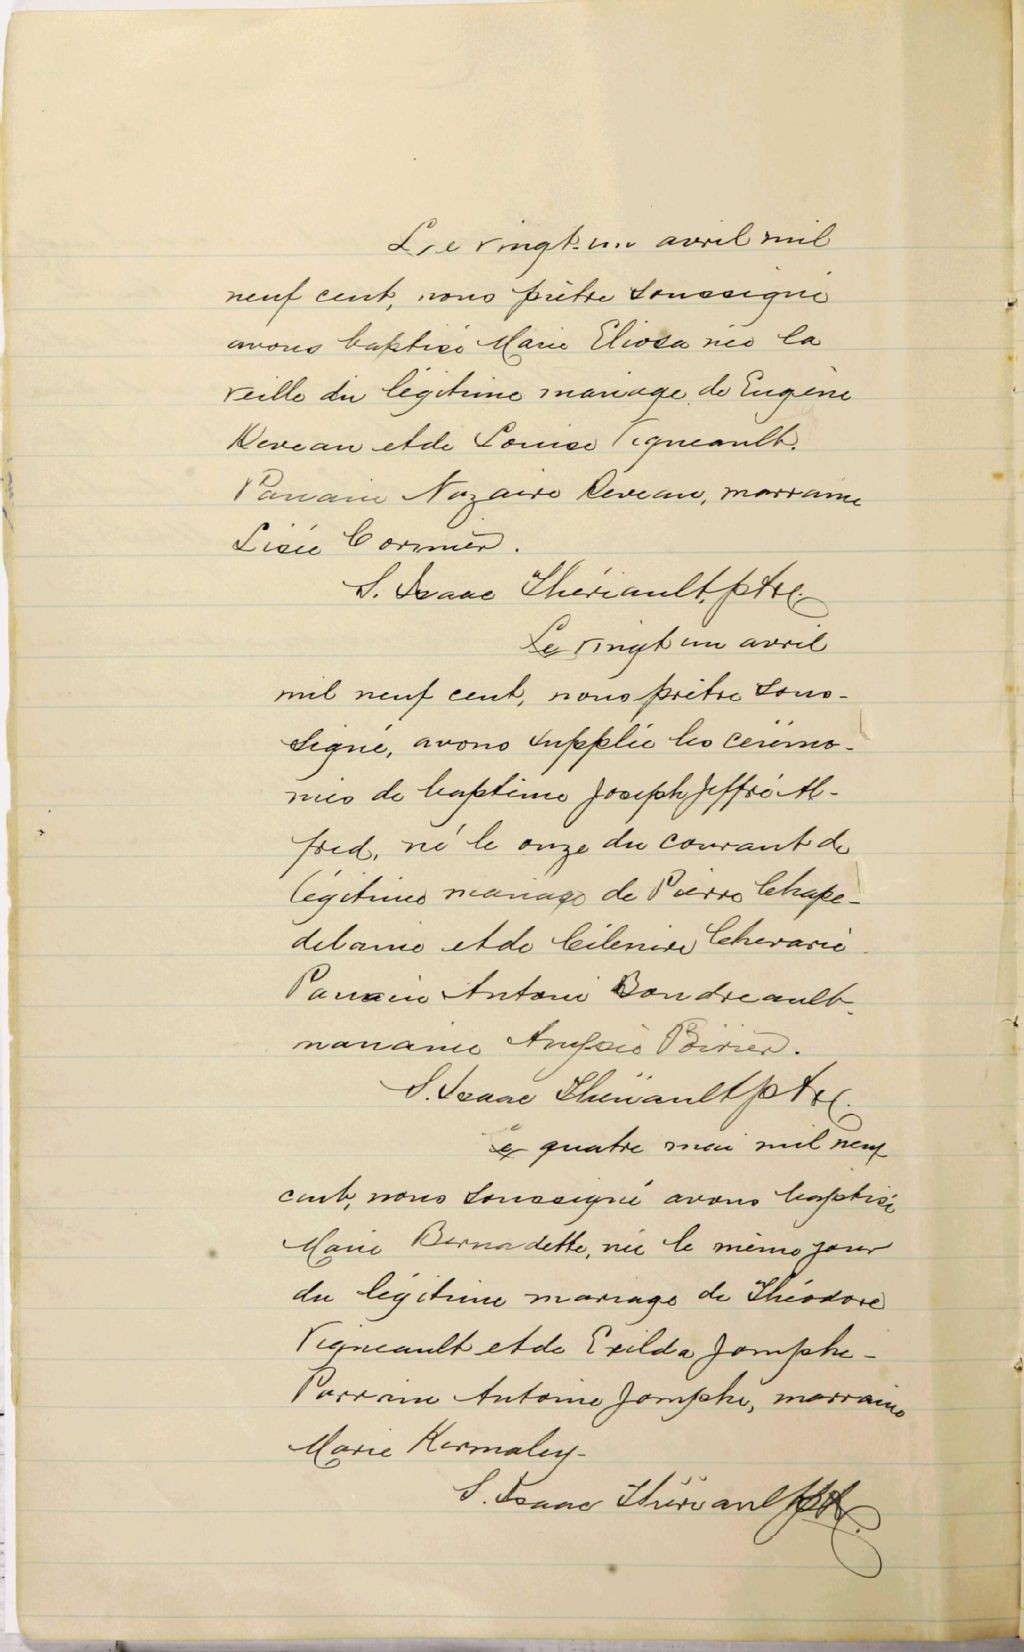 Le vingt-un avril mil
neuf cent, nous prêtre soussigné
avons baptisé Marie Eliosa née la
veille du légitime mariage de Eugène
et de Louise Vigneault.
Parrain Nazaire marraine
Lisée Cormier.
S. Isaac Thériault, ptre.
Le vingt un avril
mil neuf cent, nous prêtre sous-
signé, avons supplié les cérémo-
nies de baptême Joseph Jeffré Al-
fred, né le onze du courant de
légitime mariage de Pierre Chape-
delaine et de Célenire Chevarie
Parrain Antoine Boudreault
marraine Poirier.
S. Isaac Thériault ptre.
Le quatre mai mil neuf
cent, nous soussigné avons baptisé
Marie Bernadette, née le même jour
du légitime mariage de Théodore
Vigneault et de Exilda Jomphe -
Parrain Antoine Jomphe, marraine
Marie Kermaley -
S. Isaac Thériault ptre.